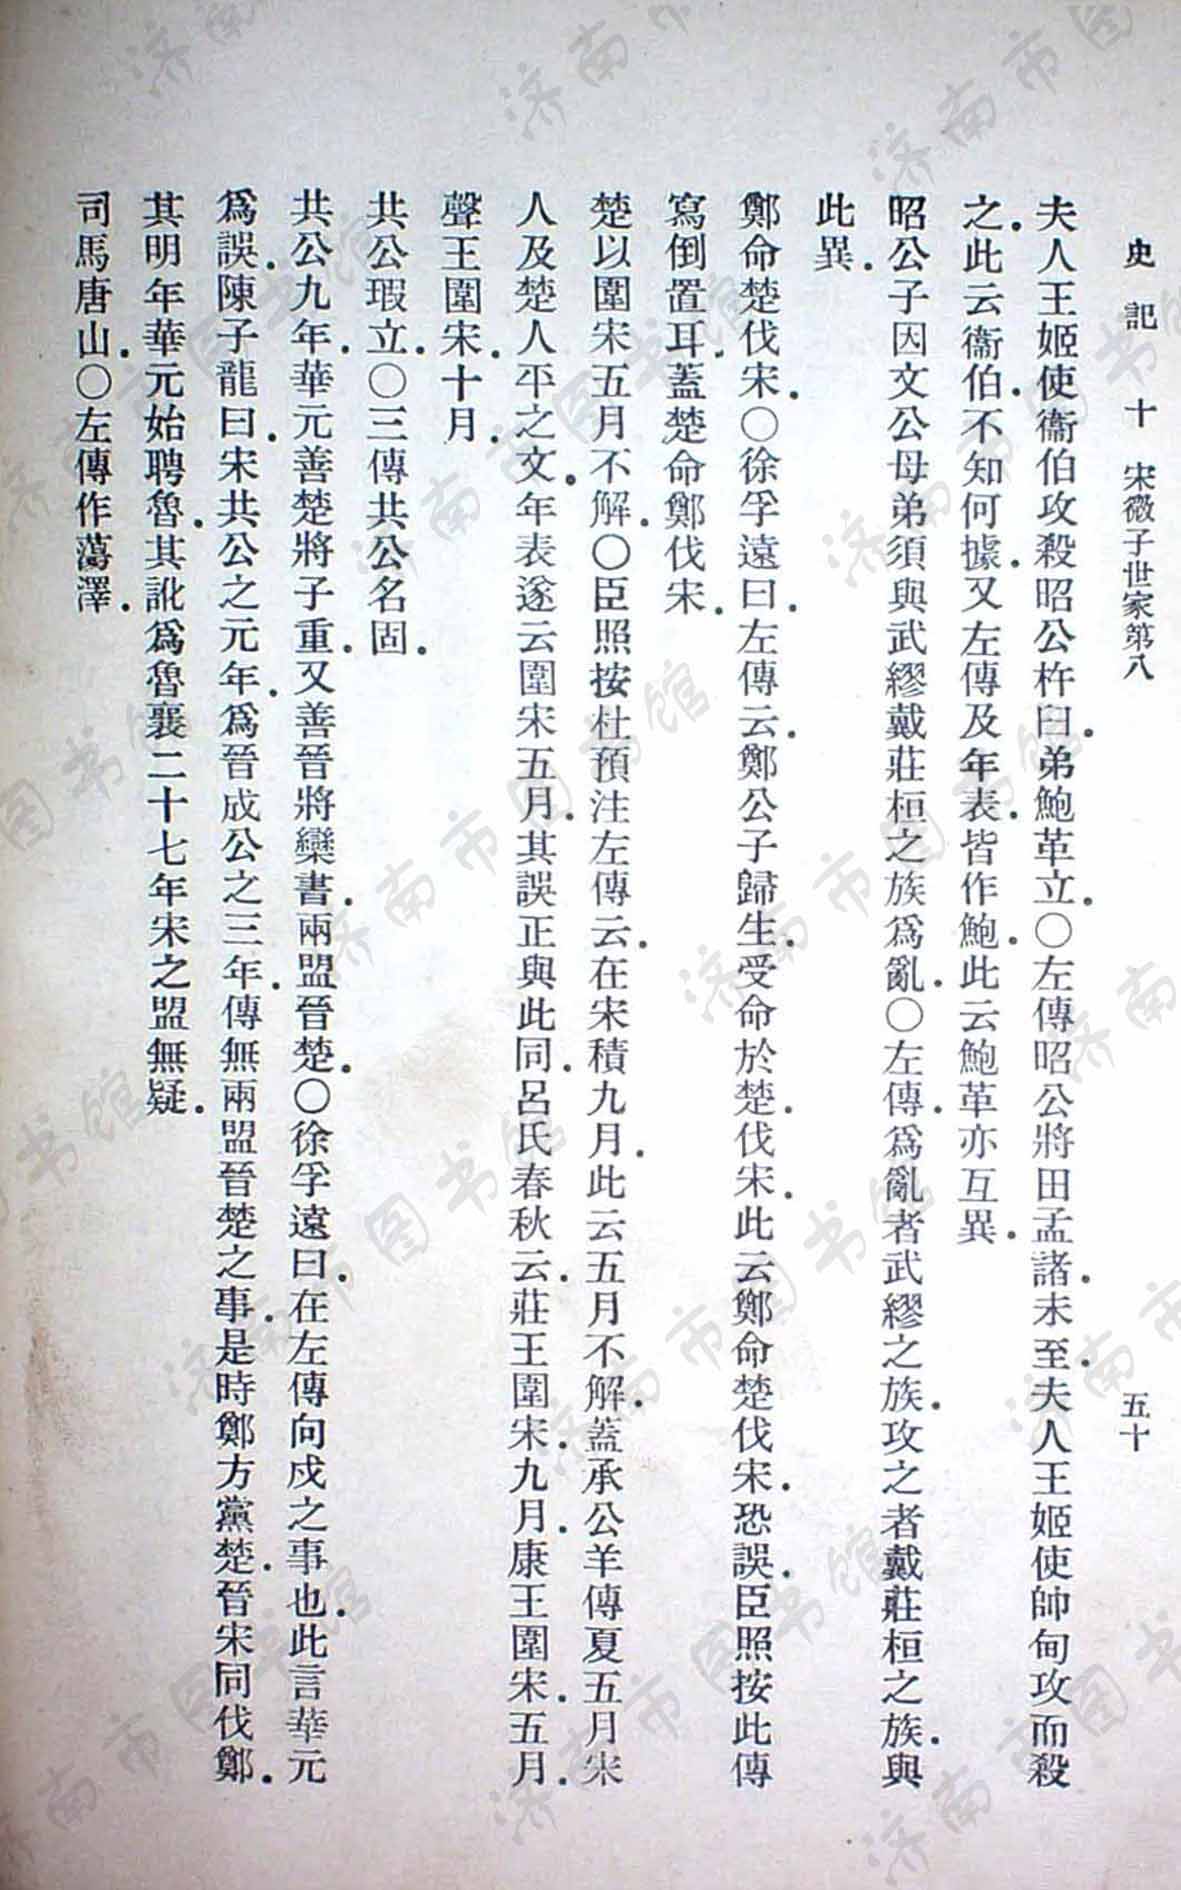 史記十 宋微子世家第八 五十
夫人王姬使衞伯攻殺昭公杵臼弟鮑革立〇左傳昭公將田孟諸未至夫人王姬使帥甸攻而殺
之此云衞伯不知何據又左傳及年表皆作鮑此云鮑革亦互異
昭公子因文公母弟須與武繆戴莊桓之族爲亂〇左傳爲亂者武繆之族攻之者戴莊桓之族與
此異
鄭命楚伐宋〇徐孚遠曰左傳云鄭公子歸生受命於楚伐宋此云鄭命楚伐宋恐誤臣照按此傳
寫倒置耳蓋楚命鄭伐宋
楚以圍宋五月不解〇臣照按杜預注左傳云在宋積九月此云五月不解蓋承公羊傳夏五月宋
人及楚人平之文年表遂云圍宋五月其誤正與此同呂氏春秋云莊王圍宋九月康王圍宋五月
聲王圍宋十月
共公瑕立〇三傳共公名固
共公九年華元善楚將子重又善晉將欒書兩盟晉楚〇徐孚遠曰在左傳向戌之事也此言華元
爲誤陳子龍曰宋共公之元年爲晉成公之三年傳無兩盟晉楚之事是時鄭方黨楚晉宋同伐鄭
其明年華元始聘魯其訛爲魯襄二十七年宋之盟無疑
司馬唐山〇左傳作蕩澤
济南市图书馆